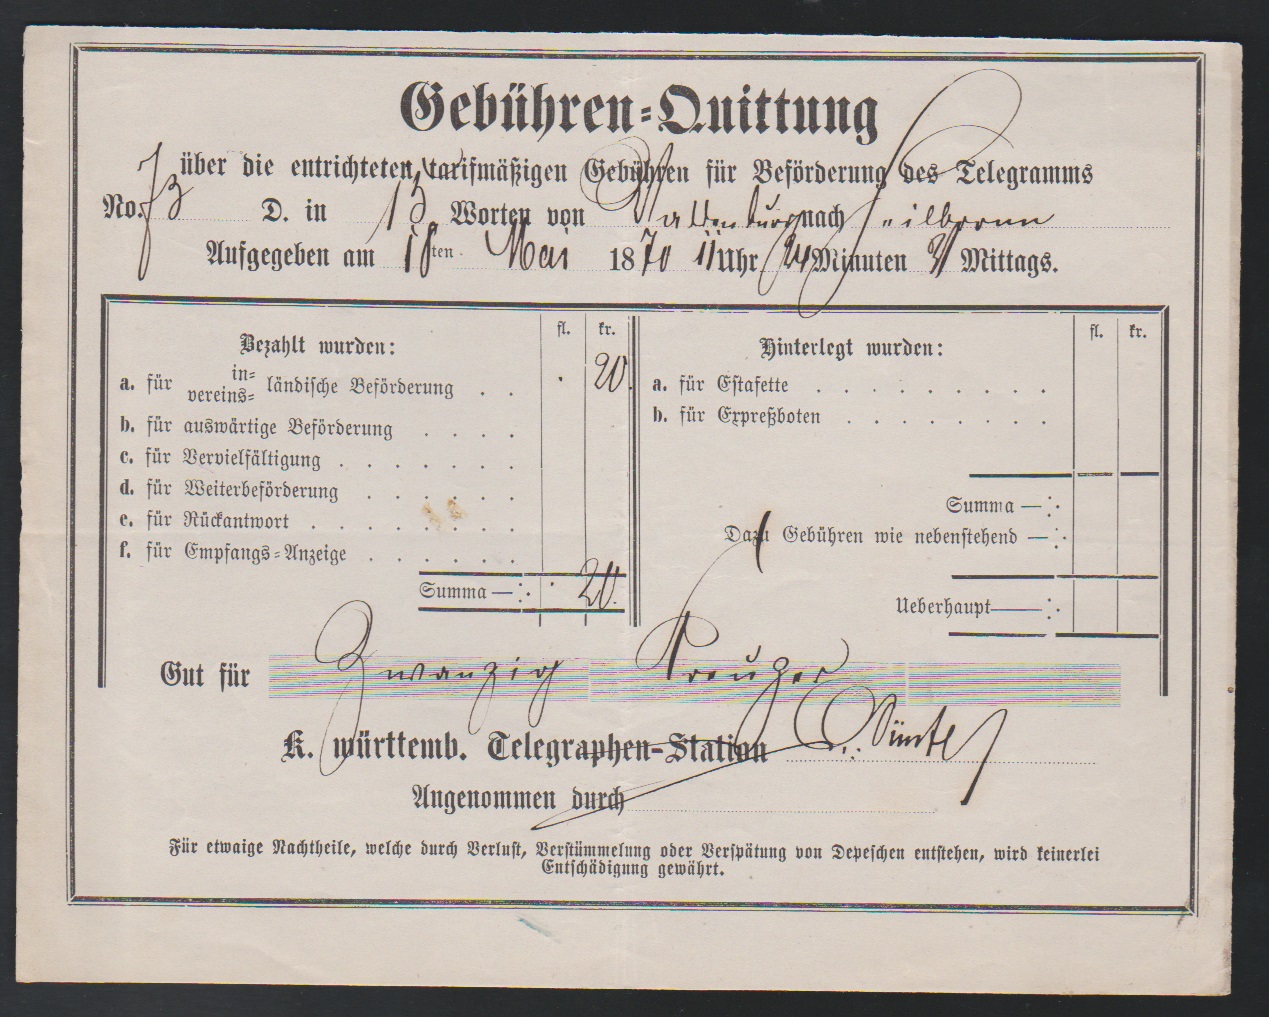 Gebühren-Quittung
über die entrichteten tarifmäßigen Gebühren für Beförderung des Telegramms
No. 73 D. in 15 Worten von Waldenburg nach Heilbronn
Aufgegeben am 18ten Mai 1870 11 Uhr 24 Minuten V Mittags.
Bezahlt wurden: fl. kr.
a. für in= vereins= ländische Beförderung . . . 20.
b. für auswärtige Beförderung . . . .
c. für Vervielfältigung . . . . . .
d. für Weiterbeförderung . . . . .
e. für Rückantwort . . . . . . .
f. für Empfangs=Anzeige . . . . .
Summa —:· · 20.
Hinterlegt wurden: fl. kr.
a. für Estafette . . . . . . . . .
b. für Expreßboten . . . . . . . .
Summa —:·
Dazu Gebühren wie nebenstehend —:·
Ueberhaupt —:·
Gut für Zwanzig Kreuzer
K. württemb. Telegraphen-Station
Angenommen durch
Für etwaige Nachtheile, welche durch Verlust, Verstümmelung oder Verspätung von Depeschen entstehen, wird keinerlei
Entschädigung gewährt.